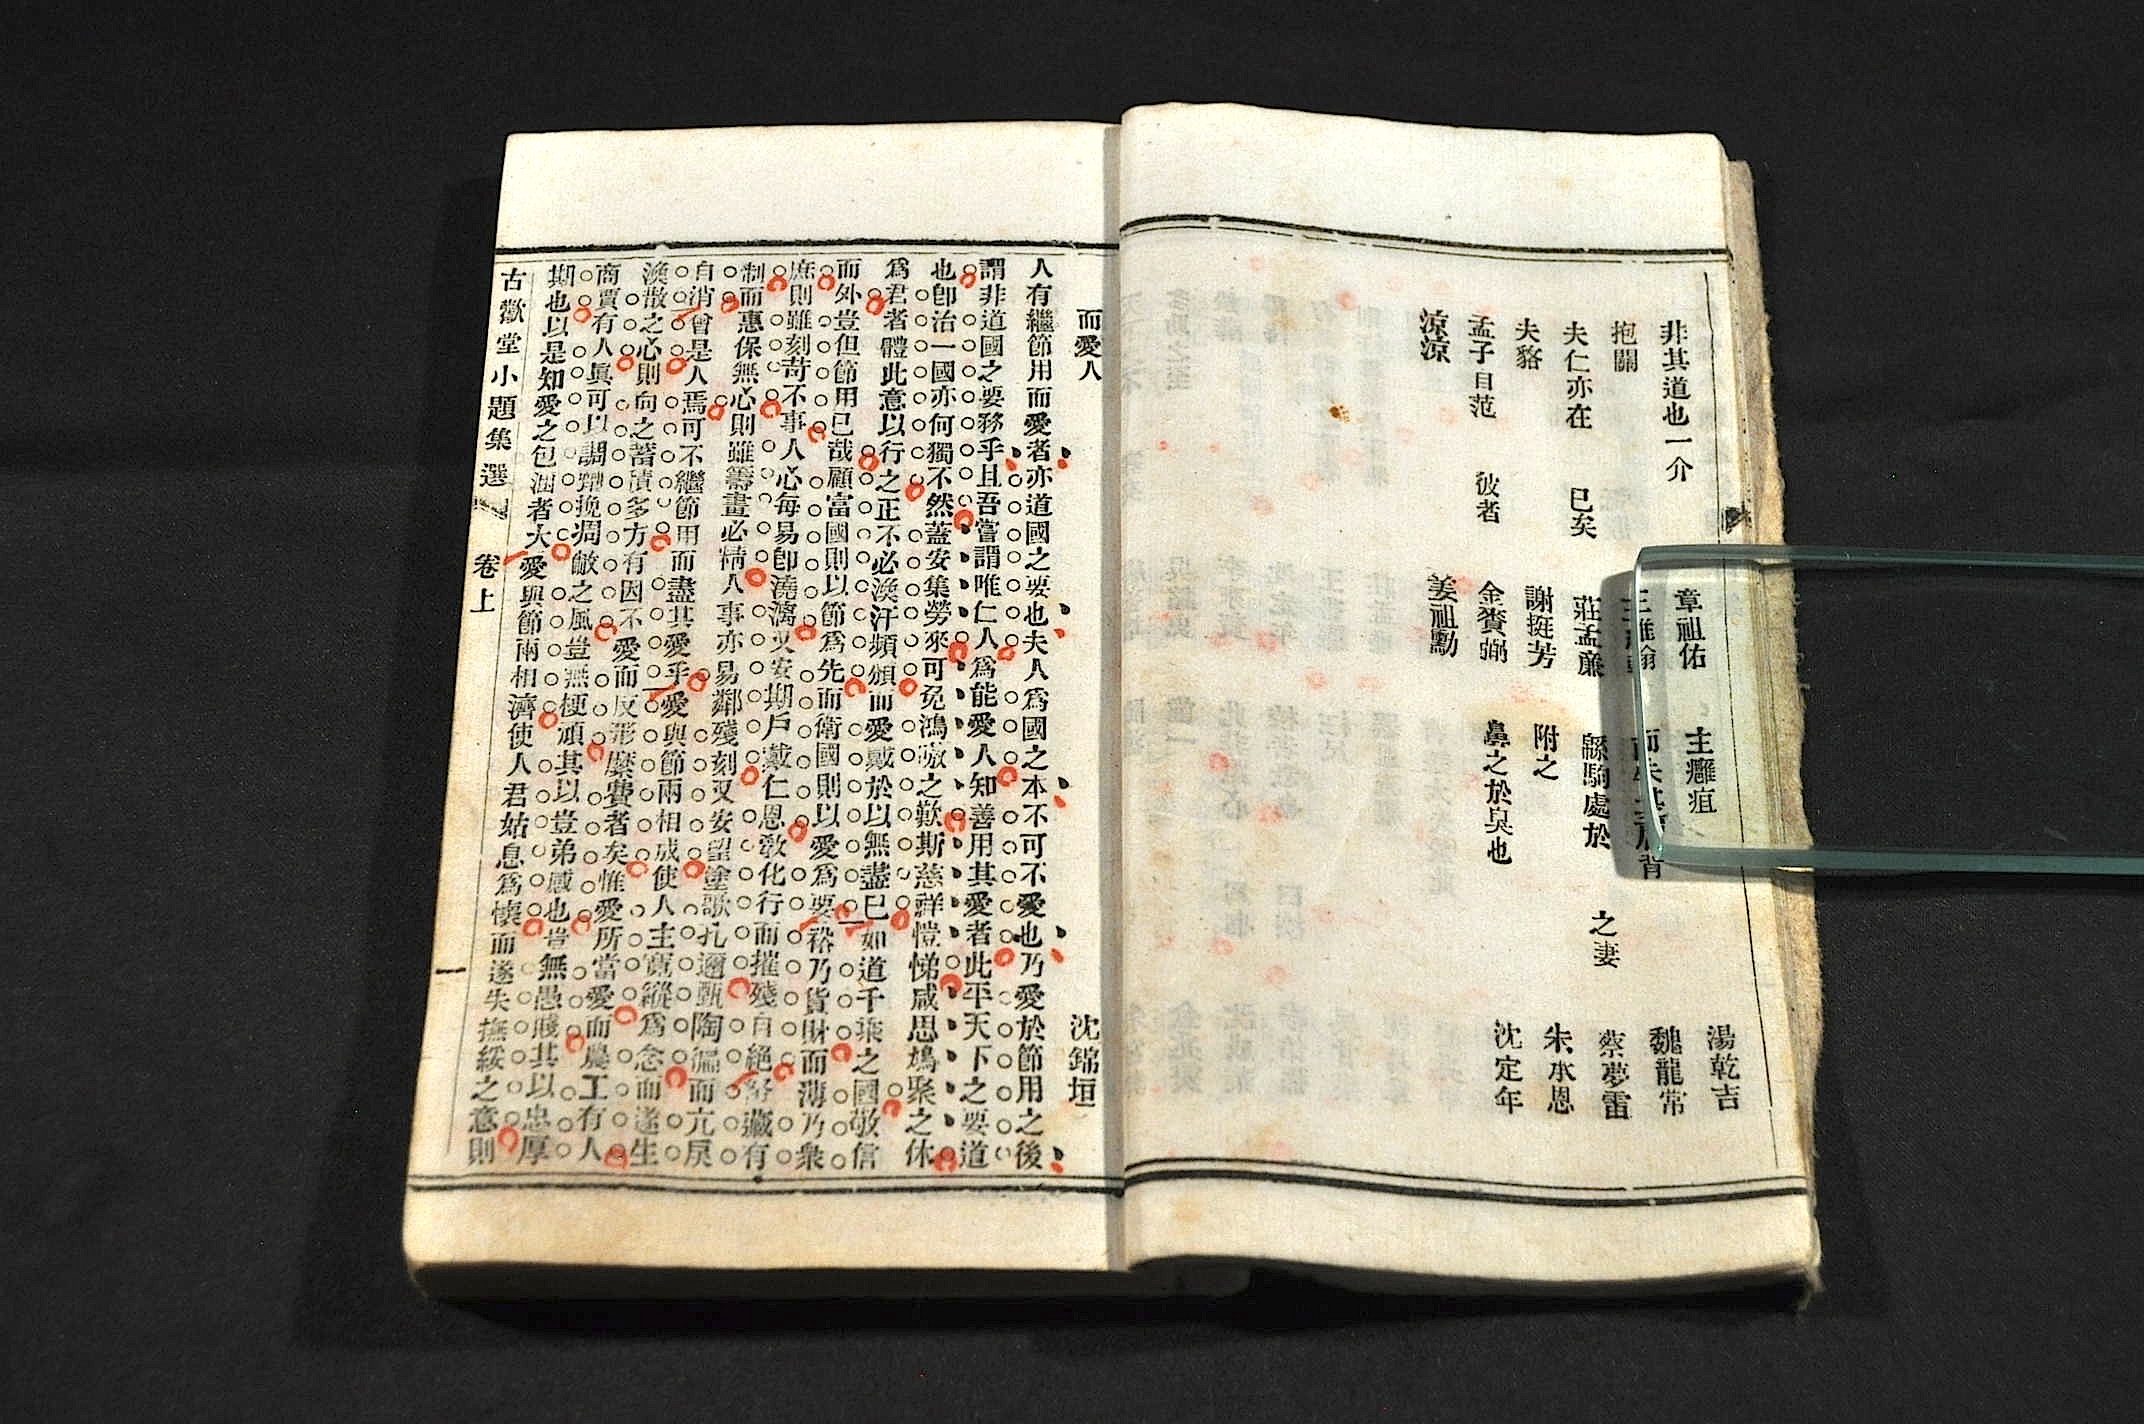 非其道也一介
章祖佑
主癰疽
湯乾吉
抱關
魏龍常
夫仁亦在
已矣
莊孟廉
緜駒處於
之妻
蔡夢雷
夫貉
謝挺芳
附之
朱承恩
孟子自范
彼者
金賚弼
鼻之於臭也
沈定年
涼涼
姜祖勳
而愛人
沈錦垣
人有繼節用而愛者亦道國之要也夫人爲國之本不可不愛也乃愛於節用之後
謂非道國之要務乎且吾嘗謂唯仁人爲能愛人知善用其愛者此平天下之要道
也卽治一國亦何獨不然蓋安集勞來可免鴻嗷之歎斯慈祥愷悌咸思鳩聚之休
爲君者體此意以行之正不必渙汗頻頒而愛戴於以無盡已如道千乘之國敬信
而外豈但節用已哉顧富國則以節爲先而衛國則以愛爲要裕乃貨財而薄乃衆
庶則雖刻苛不事人心每易卽澆漓又安期戶戴仁恩敎化行而摧殘自絕帑藏有
制而惠保無心則雖籌畫必精人事亦易鄰殘刻又安望塗歌孔邇甄陶徧而亢戾
自消曾是人焉可不繼節用而盡其愛乎愛與節兩相成使人主寬縱爲念而遂生
渙散之心則向之蓄積多方有因不愛而反形糜費者矣惟愛所當愛而農工有人
商賈有人眞可以調劑挽凋敝之風豈無梗頑其以豈弟感也豈無愚賤其以忠厚
期也以是知愛之包涵者大愛與節兩相濟使人君姑息爲懷而遂失撫綏之意則
古歡堂小題集選
卷上
一